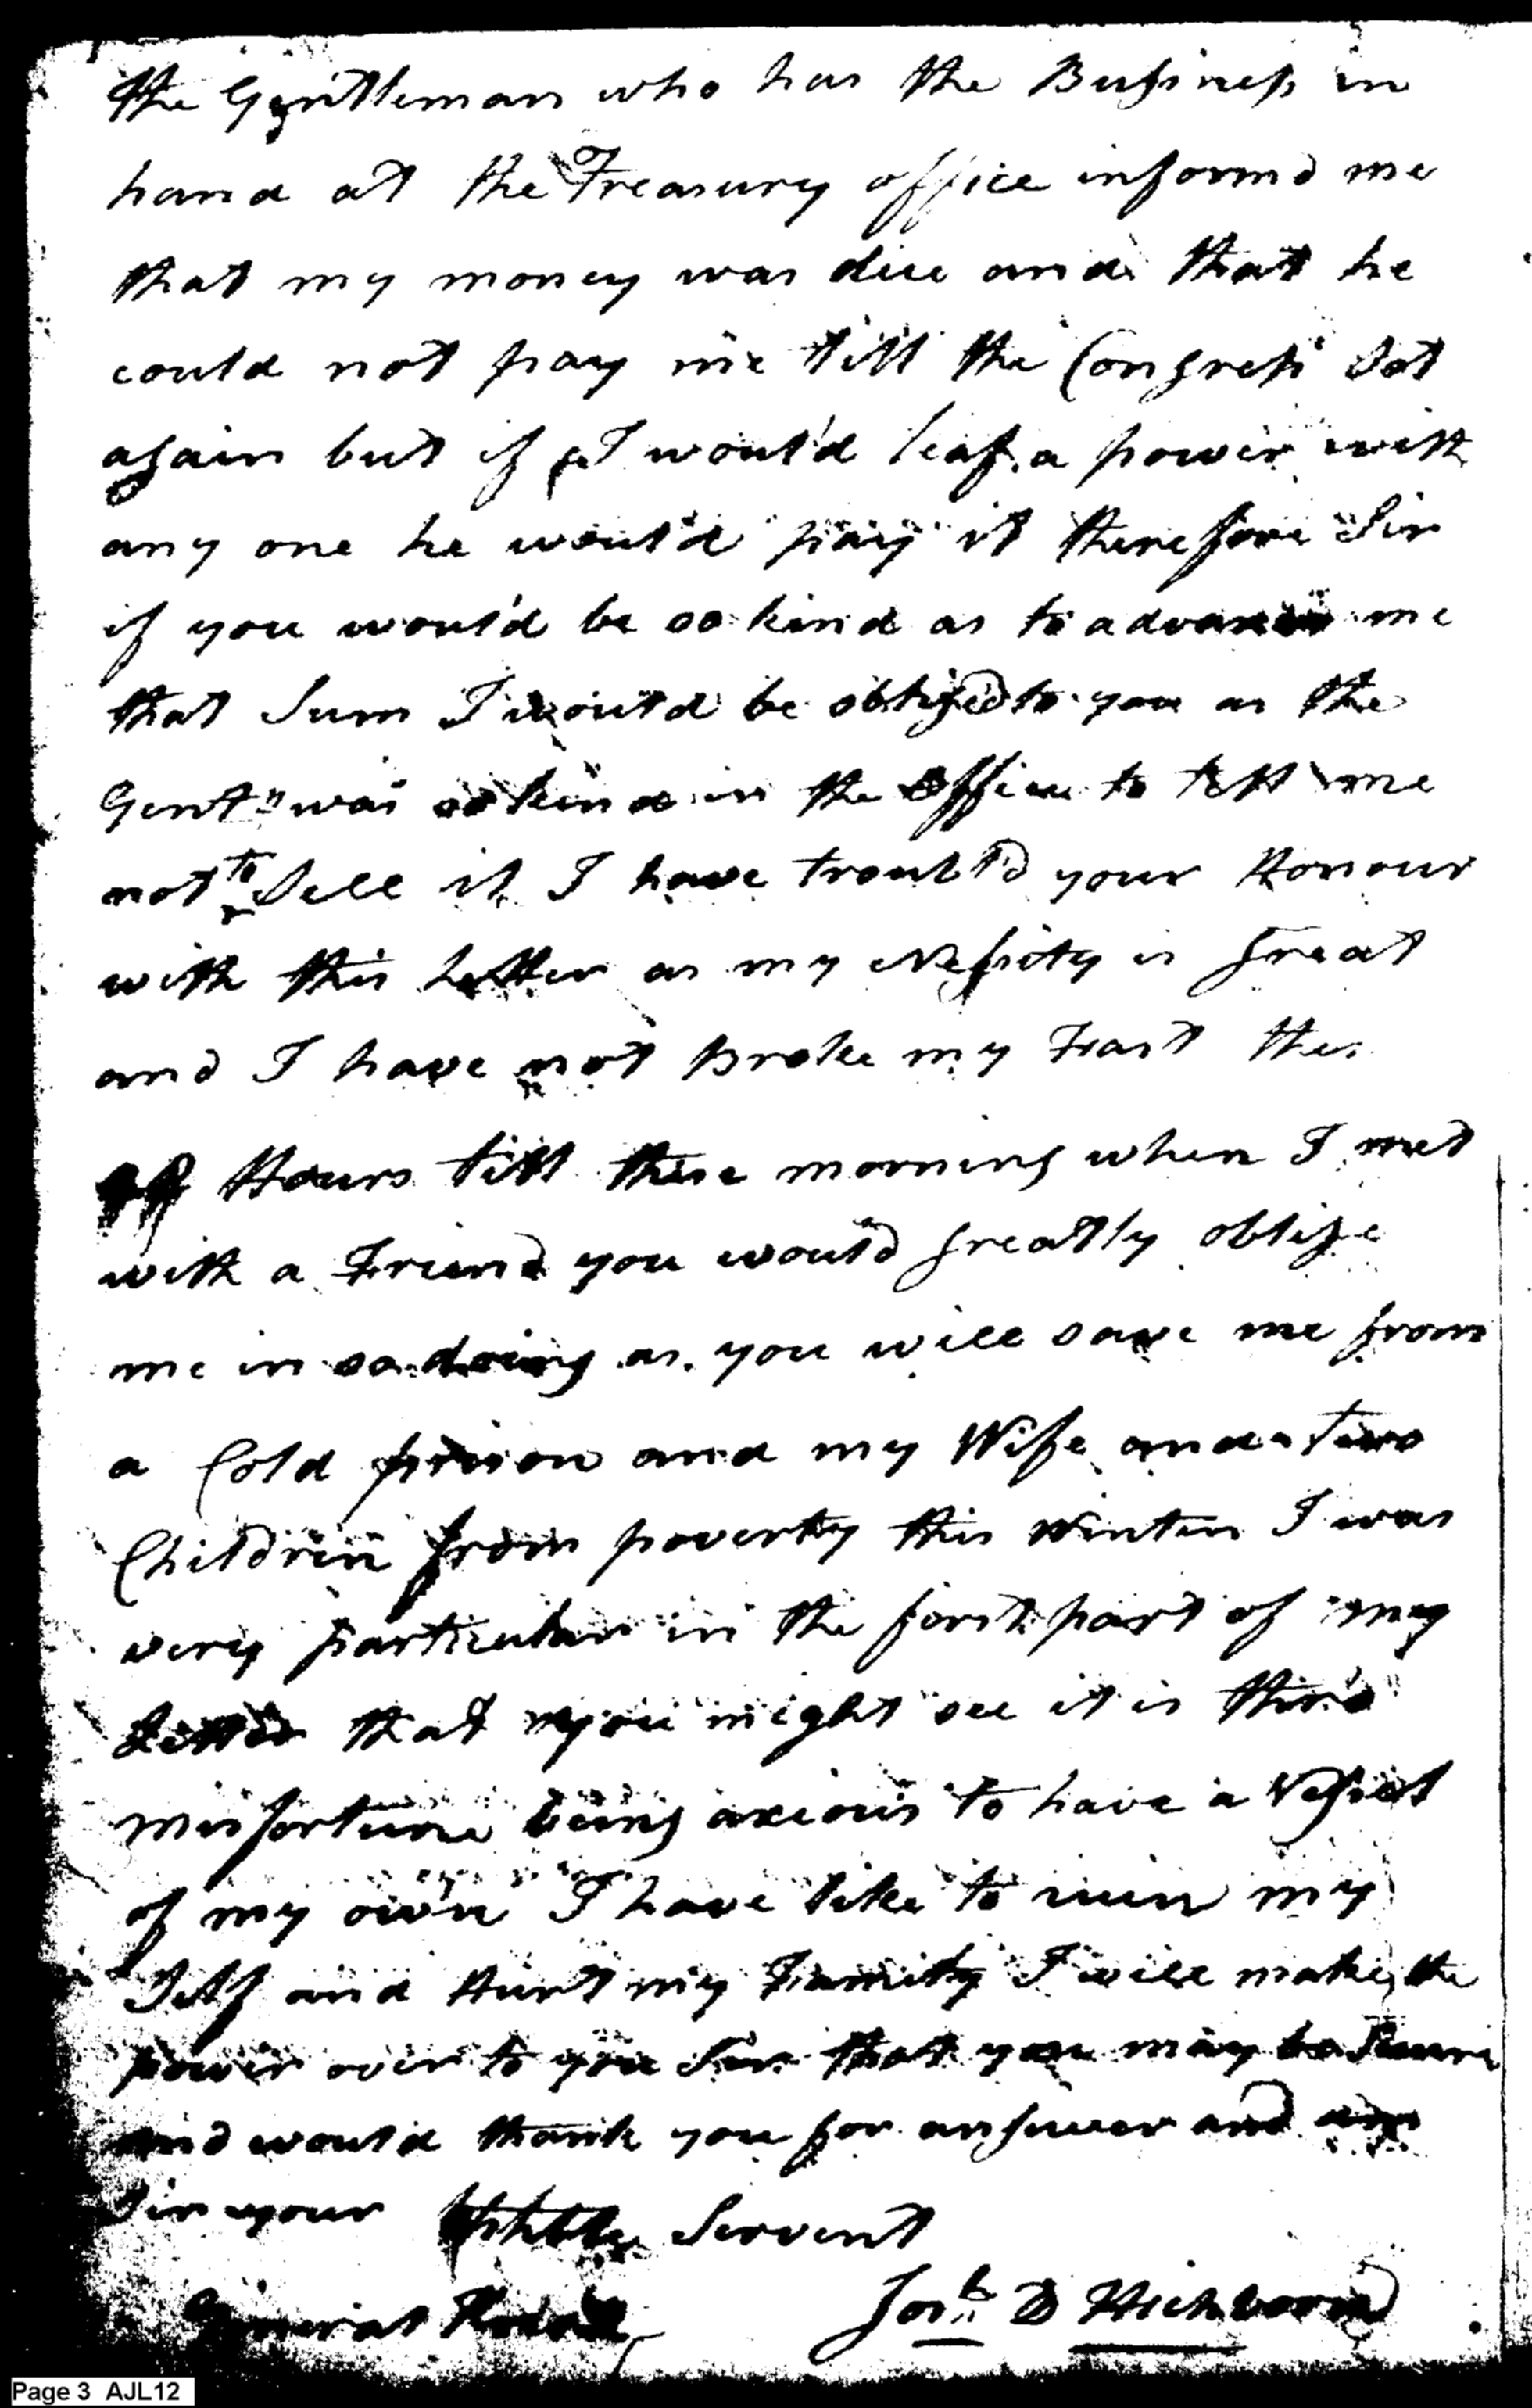 the Gentleman who has the Business in
hand at the Treasury office informd me
that my money was due and that he
could not pay me till the Congress Sot
again but if I would leaf a power with
any one he would pay it therefore Sir
if you would be so kind as to advance me
that Sum I would be obliged to you as the
Gentn was so kind in the office to tell me
not to Sell it I have troubl'd your Honour
with this Letter as my Nessity is Great
and I have not broke my Fast thes
Hours till these morning when I met
with a Friend you would greatly oblige
me in so doing as you will save me from
a Cold prison and my Wife and two
Children from poverty this Winter I was
very particular in the forst part of my
Letter that you might see it is thro
misfortune being axious to have a Vessel
of my own I have like to ruin my
Self and Hurt my Family I will make the
power over to you Sir that you may be Secure
and would thank you for answer and am
Sir your Hble Servent
General Jos.h D Hichborn
Page 3 AJL12